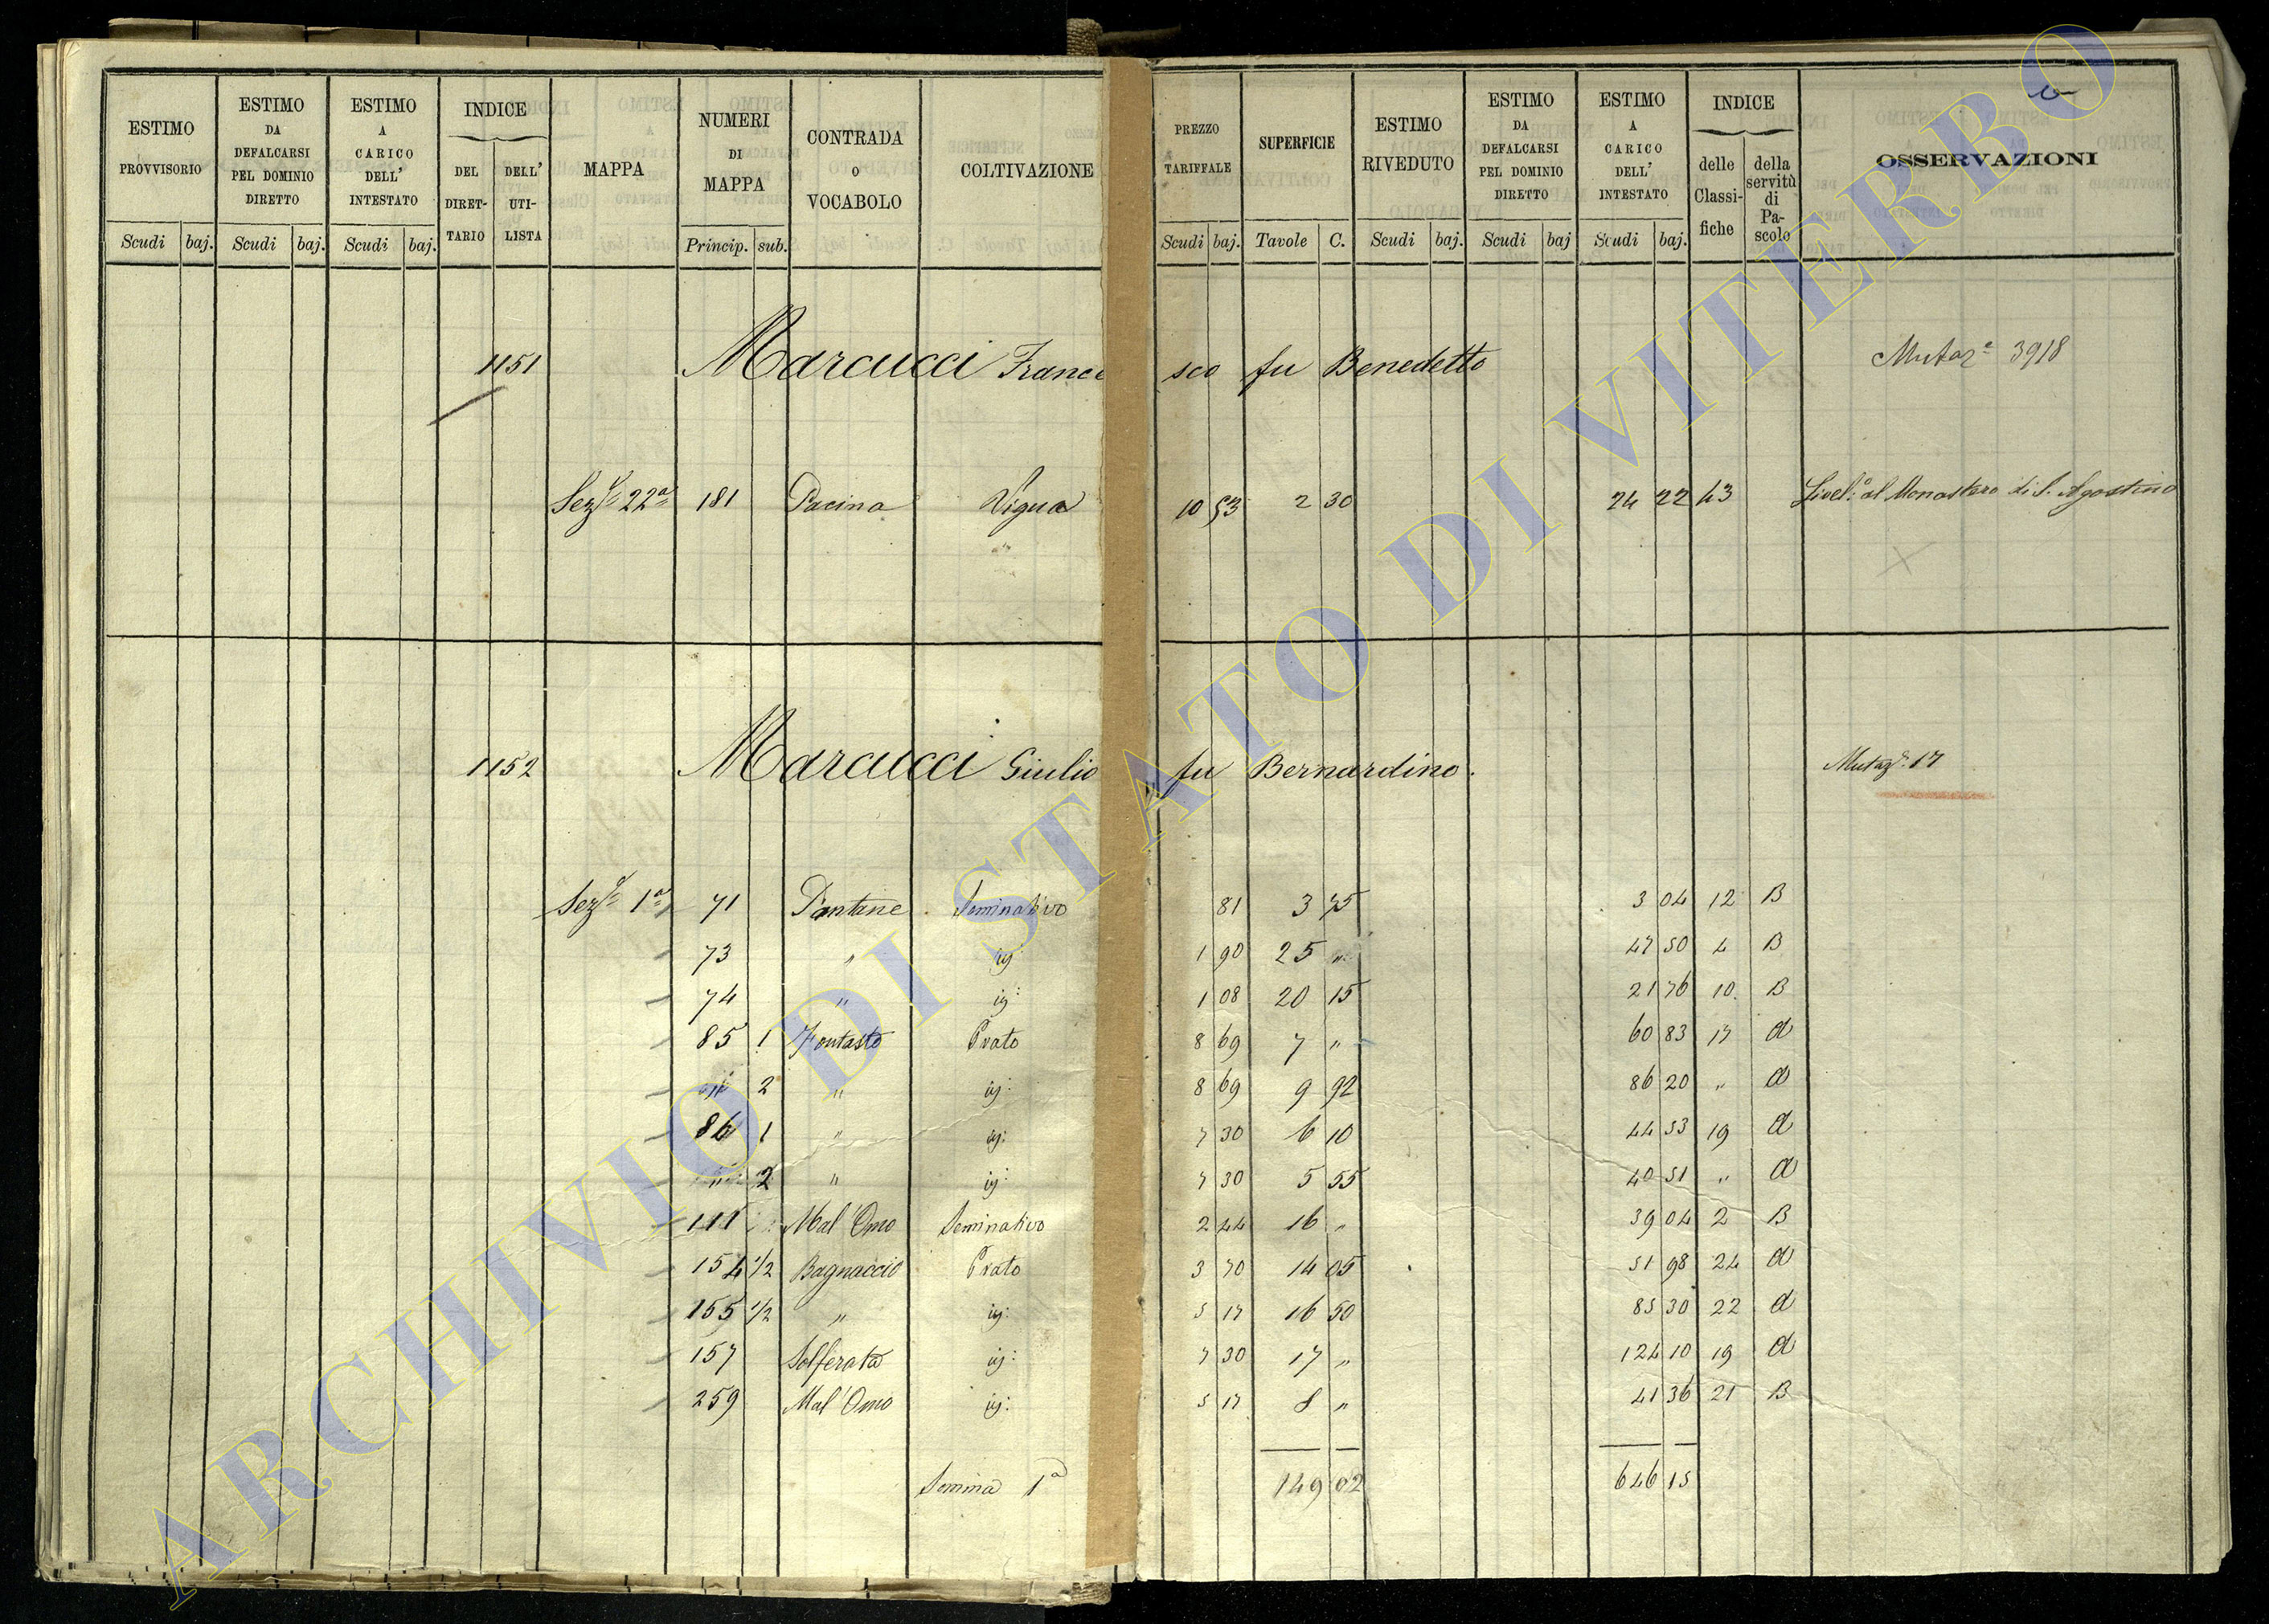 ESTIMO PROVVISORIO
Scudi baj.
ESTIMO DA DEFALCARSI PEL DOMINIO DIRETTO
Scudi baj.
ESTIMO A CARICO DELL' INTESTATO
Scudi baj.
INDICE
DEL DIRET-TARIO
DELL' UTI-LISTA
MAPPA
NUMERI DI MAPPA
Princip. sub.
CONTRADA O VOCABOLO
COLTIVAZIONE
PREZZO TARIFFALE
Scudi baj.
SUPERFICIE
Tavole C.
ESTIMO RIVEDUTO
Scudi baj.
ESTIMO DA DEFALCARSI PEL DOMINIO DIRETTO
Scudi baj
ESTIMO A CARICO DELL' INTESTATO
Scudi baj.
INDICE
delle Classi-fiche
della servitù di Pa-scolo
OSSERVAZIONI
1151 Marcucci Francesco fu Benedetto Mutaz.e 3918
Sez.e 22a 181 Pacina Vigna 10 53 2 30 24 22 43 Livel.o al Monastero di S. Agostino
1152 Marcucci Giulio fu Bernardino. Mutaz.e 17
Sez.e 1a 71 Pantane Seminativo 81 3 75 3 04 12 B
73 " ig: 1 90 25 " 47 50 4 B
74 " ig: 1 08 20 15 21 76 10. B
85 1 Fontasto Prato 8 69 7 " 60 83 17 a
" 2 " ig: 8 69 9 92 86 20 " a
86 1 " ig: 7 30 6 10 44 53 19 a
" 2 " ig: 7 30 5 55 40 51 " a
111 Mal'Omo Seminativo 2 44 16 " 39 04 2 B
154 1/2 Bagnaccio Prato 3 70 14 05 51 98 24 a
155 1/2 " ig: 5 17 16 50 85 30 22 a
157 Solferata ig: 7 30 17 " 124 10 19 a
259 Mal'Omo ig: 5 17 8 " 41 36 21 B
Somma 1a 149 02 646 15
ARCHIVIO DI STATO DI VITERBO